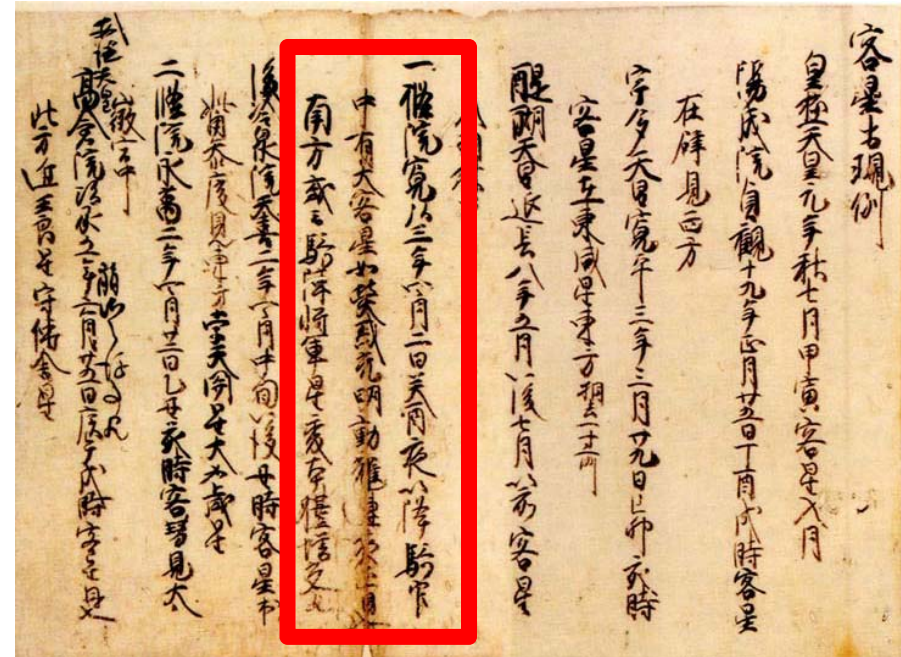 客星古現例
皇極天皇元年秋七月甲寅客星入月
陽成院貞觀十九年正月廿五日丁酉戌時客星
在辟見西方
宇多天皇寛平三年三月廿九日己卯亥時
客星在東咸星東方相去一寸所
醍醐天皇延長八年五月以後七月以前客星
一條院寛弘三年四月二日癸酉夜以降騎官
中有大客星如熒惑光明動耀連夜正見
南方或云騎陣將軍星變本體增光
後冷泉院天喜二年四月中旬以後丑時客星
見東方天關星大如歲星
二條院永萬二年四月廿二日乙丑亥時客星見
高倉院治承五年六月廿五日庚午戌時客星見
守傳舍星